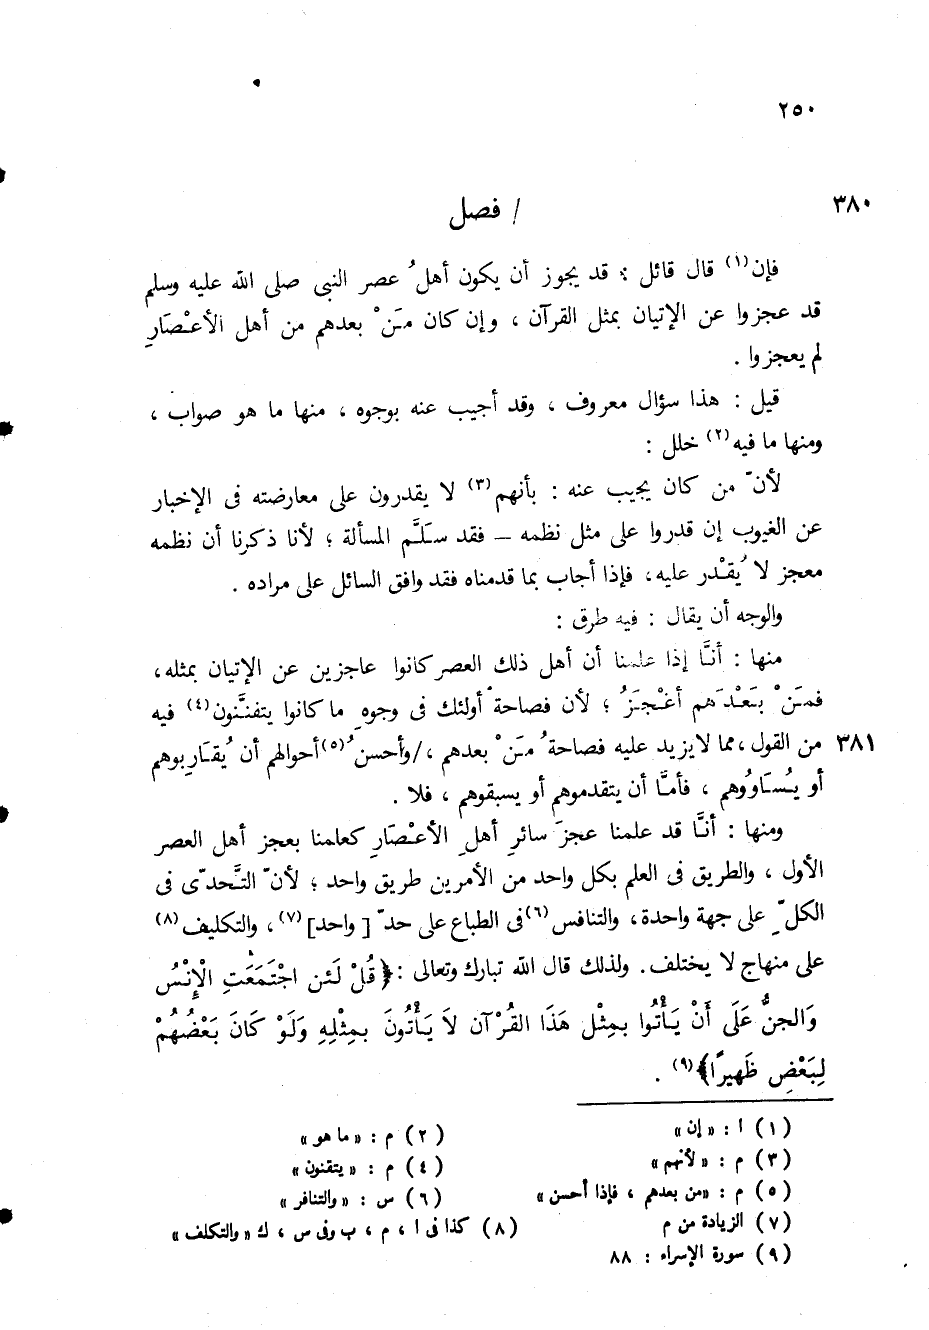 ٢٥٠
٣٨٠
/ فصل
فإن(١) قال قائل : قد يجوز أن يكون أهلُ عصر النبى صلى الله عليه وسلم
قد عجزوا عن الإتيان بمثل القرآن ، وإن كان مَنْ بعدهم من أهل الأعْصَارِ
لم يعجزوا .
قيل : هذا سؤال معروف ، وقد أجيب عنه بوجوه ، منها ما هو صواب ،
ومنها ما فيه(٢) خلل :
لأنّ من كان يجيب عنه : بأنهم(٣) لا يقدرون على معارضته فى الإخبار
عن الغيوب إن قدروا على مثل نظمه – فقد سَلَّم المسألة ؛ لأنا ذكرنا أن نظمه
معجز لا يُقْدر عليه، فإذا أجاب بما قدمناه فقد وافق السائل على مراده .
والوجه أن يقال : فيه طرق :
منها : أنَّا إذا علمنا أن أهل ذلك العصر كانوا عاجزين عن الإتيان بمثله ،
فمَنْ بَعْدَهم أعْجَزُ ؛ لأن فصاحةَ أولئك فى وجوه ما كانوا يتفنَّنون(٤) فيه
٣٨١
من القول ، مما لا يزيد عليه فصاحةُ مَنْ بعدهم ، /وأحسنُ(٥) أحوالهم أن يُقَارِبوهم
أو يُسَاوُوهم ، فأمَّا أن يتقدموهم أو يسبقوهم ، فلا .
ومنها : أنَّا قد علمنا عجزَ سائرِ أهلِ الأعْصَارِ كعلمنا بعجز أهل العصر
الأول ، والطريق فى العلم بكل واحد من الأمرين طريق واحد ؛ لأنّ التَّحدّى فى
الكلّ على جهة واحدة، والتنافس(٦) فى الطباع على حدّ [ واحد](٧) ، والتكليف(٨)
على منهاج لا يختلف. ولذلك قال الله تبارك وتعالى : ﴿ قُلْ لَئن اجْتَمَعَتِ الْإِنْسُ
وَالجنُّ عَلَى أَنْ يَأْتُوا بمِثْل هَذَا القُرْآن لاَ يَأْتُونَ بمِثْلِهِ وَلَوْ كَانَ بَعْضُهُمْ
لِبَعْضٍ ظَهِيرًا﴾(٩) .
(١) ا : «إن»
(٢) م : «ما هو»
(٣) م : «لأنهم»
(٤) م : «يتقنون»
(٥) م : «من بعدهم ، فإذا أحسن»
(٦) س : «والتنافر»
(٧) الزيادة من م
(٨) كذا فى ا ، م ، ب وفى س ، ك «والتكلف»
(٩) سورة الإسراء : ٨٨